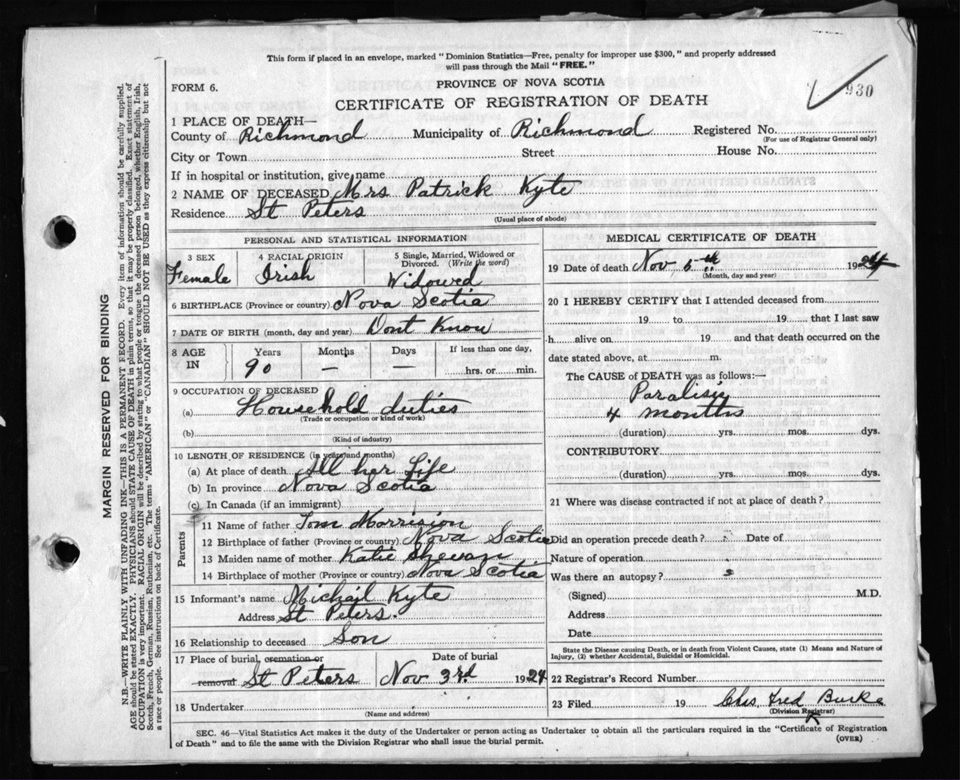 This form if placed in an envelope, marked "Dominion Statistics—Free, penalty for improper use $300," and properly addressed
will pass through the Mail "FREE."
FORM 6.
PROVINCE OF NOVA SCOTIA
930
CERTIFICATE OF REGISTRATION OF DEATH
1 PLACE OF DEATH—
County of Richmond Municipality of Richmond Registered No.
(For use of Registrar General only)
City or Town Street House No.
If in hospital or institution, give name
2 NAME OF DECEASED Mrs Patrick Kyte
Residence St Peters
(Usual place of abode)
PERSONAL AND STATISTICAL INFORMATION
3 SEX 4 RACIAL ORIGIN 5 Single, Married, Widowed or Divorced. (Write the word)
Female Irish Widowed
6 BIRTHPLACE (Province or country) Nova Scotia
7 DATE OF BIRTH (month, day and year) Dont Know
8 AGE IN Years Months Days If less than one day,
90 — — hrs. or min.
9 OCCUPATION OF DECEASED
(a) Household duties
(Trade or occupation or kind of work)
(b)
(Kind of industry)
10 LENGTH OF RESIDENCE (in years and months)
(a) At place of death All her Life
(b) In province Nova Scotia
(c) In Canada (if an immigrant)
Parents
11 Name of father Tom Morrision
12 Birthplace of father (Province or country) Nova Scotia
13 Maiden name of mother Katie
14 Birthplace of mother (Province or country) Nova Scotia
15 Informant's name Michail Kyte
Address St Peters.
16 Relationship to deceased Son
17 Place of burial, cremation or removal Date of burial
St Peters Nov 3rd 1924
18 Undertaker
(Name and address)
MEDICAL CERTIFICATE OF DEATH
19 Date of death Nov 5th 1924
(Month, day and year)
20 I HEREBY CERTIFY that I attended deceased from
19 to 19 that I last saw
h alive on 19 and that death occurred on the
date stated above, at m.
The CAUSE of DEATH was as follows:—
Paralisis
4 months
(duration) yrs. mos. dys.
CONTRIBUTORY
(duration) yrs. mos. dys.
21 Where was disease contracted if not at place of death?
Did an operation precede death? Date of
Nature of operation
Was there an autopsy?
(Signed) M.D.
Address
Date
State the Disease causing Death, or in death from Violent Causes, state (1) Means and Nature of
Injury, (2) whether Accidental, Suicidal or Homicidal.
22 Registrar's Record Number
23 Filed 19 Chas. Fred Burke
(Division Registrar)
SEC. 46—Vital Statistics Act makes it the duty of the Undertaker or person acting as Undertaker to obtain all the particulars required in the "Certificate of Registration
of Death" and to file the same with the Division Registrar who shall issue the burial permit.
(OVER)
MARGIN RESERVED FOR BINDING
N.B.—WRITE PLAINLY WITH UNFADING INK—THIS IS A PERMANENT RECORD. Every item of information should be carefully supplied.
AGE should be stated EXACTLY. PHYSICIANS should STATE CAUSE OF DEATH in plain terms, so that it may be properly classified. Exact statement of
OCCUPATION is very important. RACIAL ORIGIN will be described by stating to what people or tongue the deceased person belonged, whether English, Irish,
Scotch, French, German, Russian, Ruthenian, etc. The terms "AMERICAN" or "CANADIAN" SHOULD NOT BE USED as they express citizenship but not
a race or people. See instructions on back of Certificate.